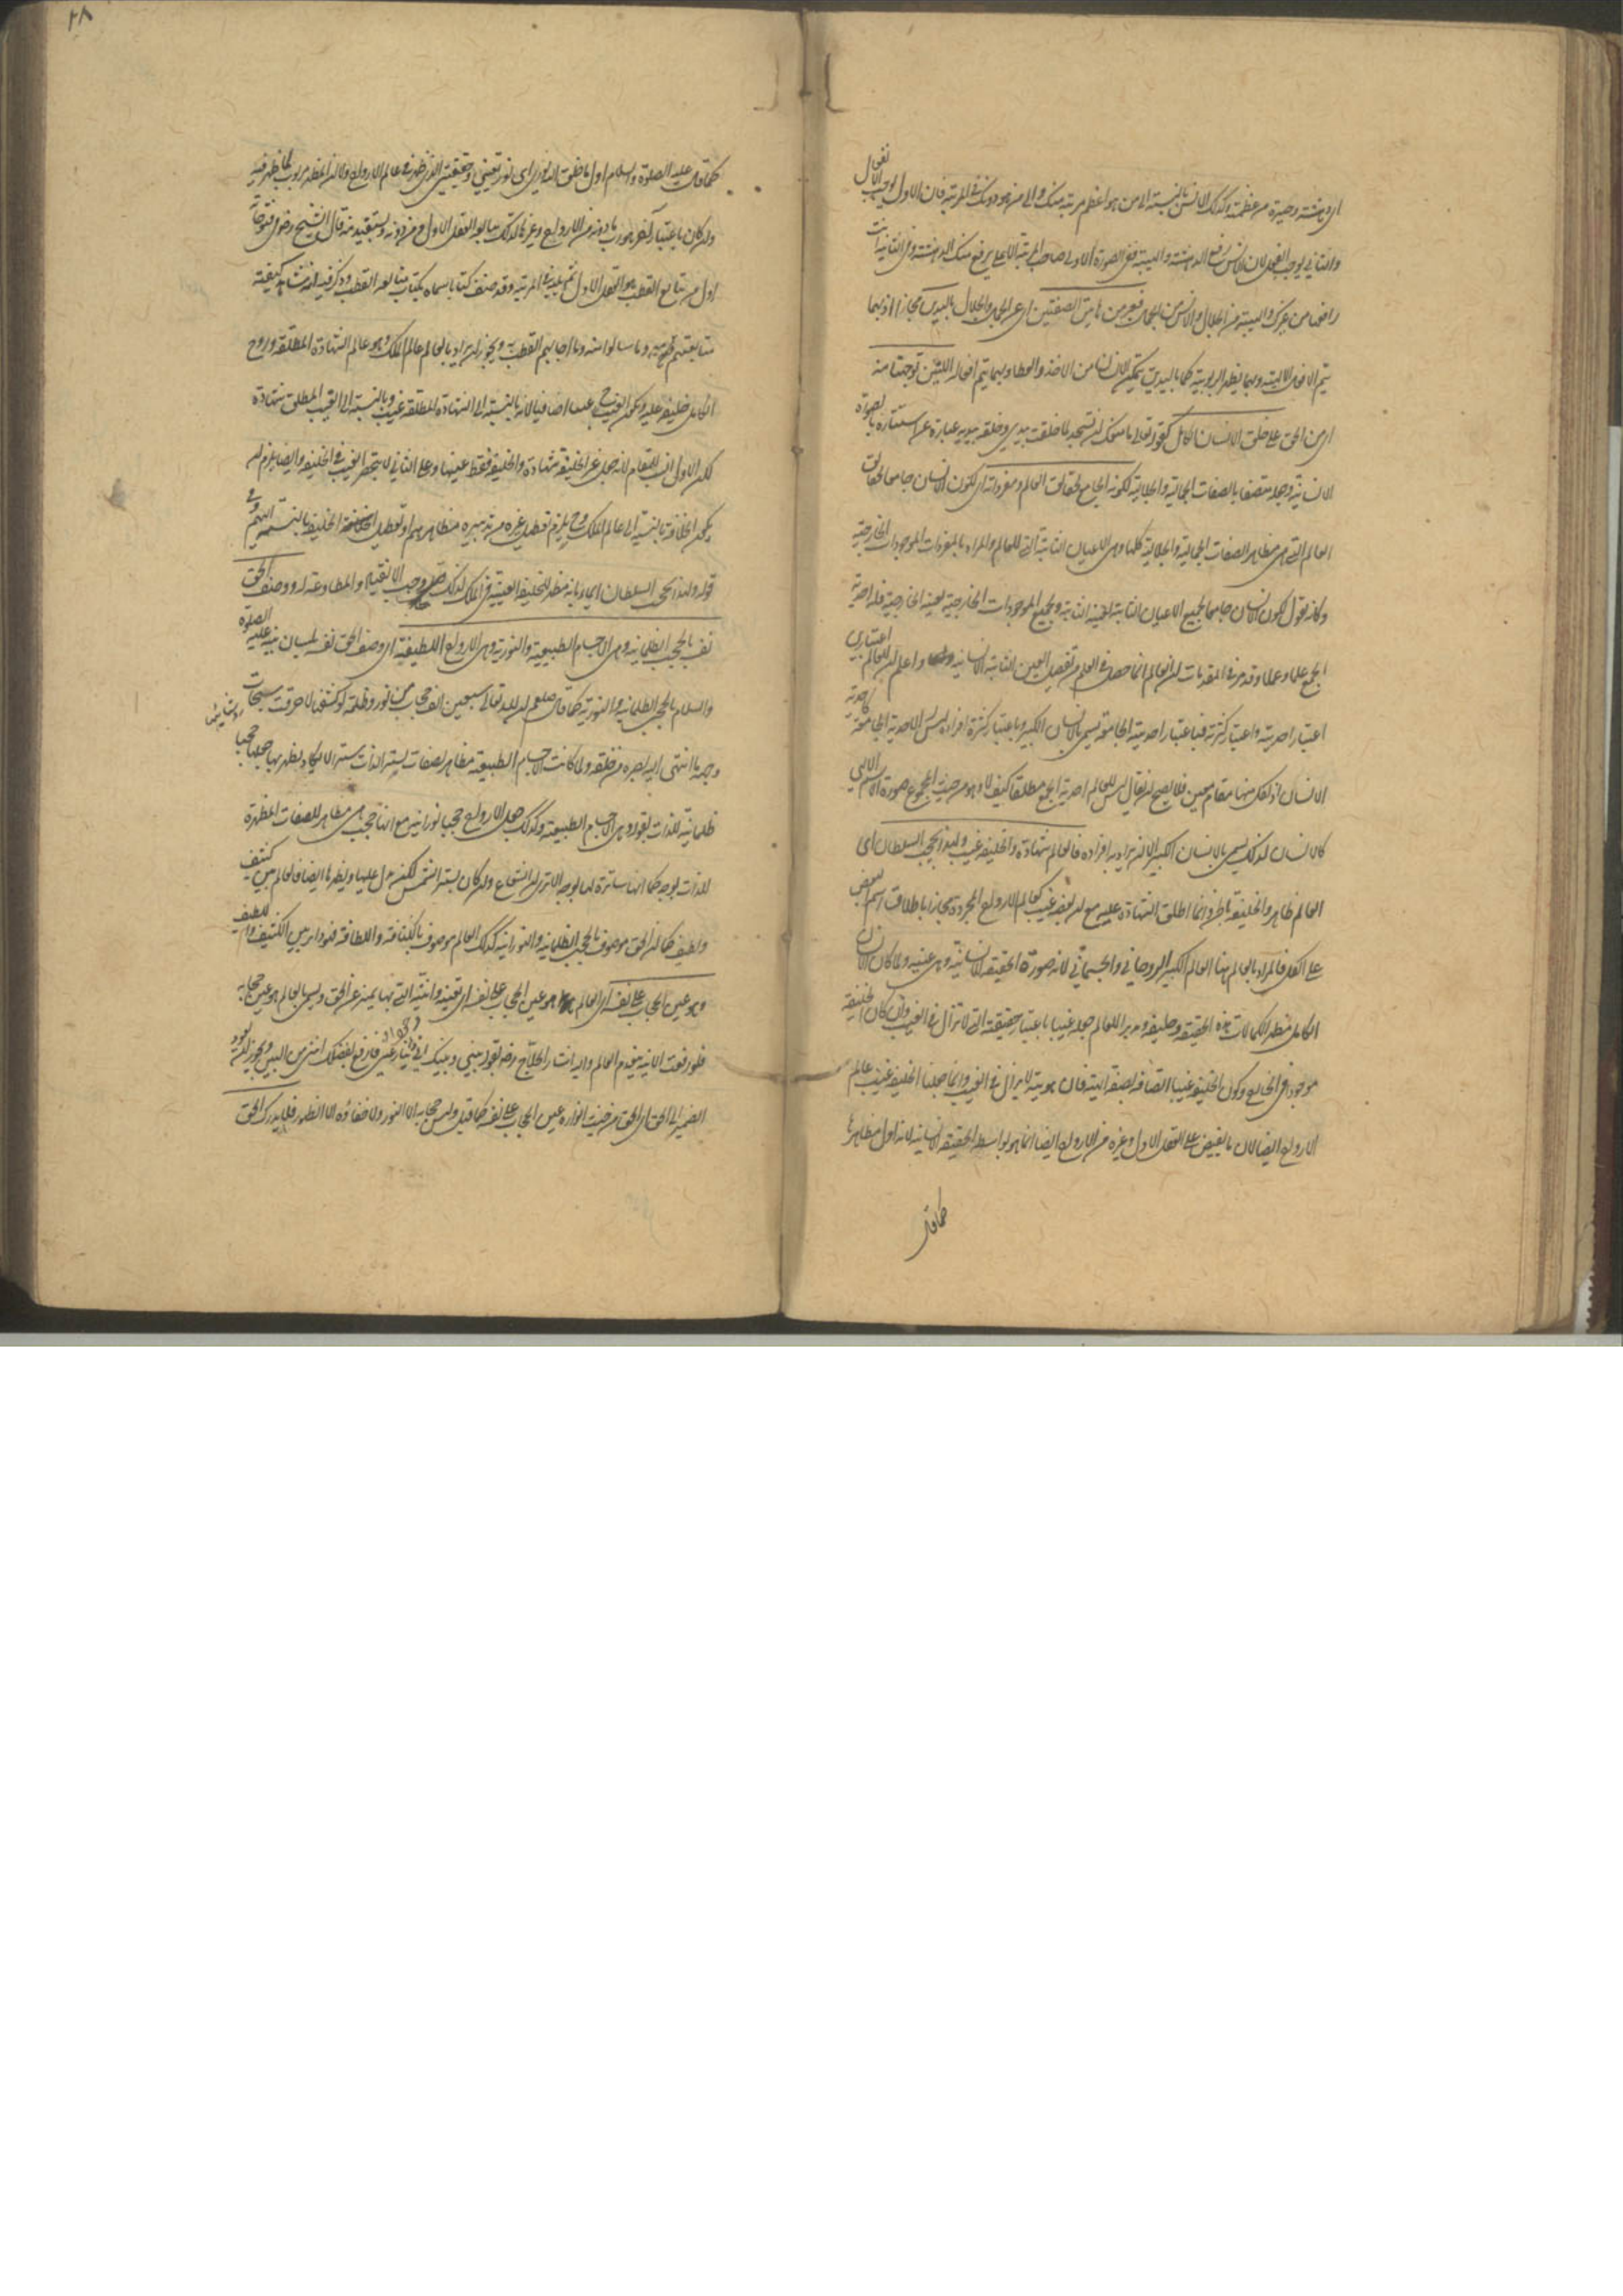 اى دهشته وحيرة من عظمته وكذلك الانس بالنسبة الى من هو اعظم مرتبة منك والى من هو دونك فى المرتبة فان الاول يوجب الانفعال
والثانى يوجب الفعل لان الانس رفع الدهشة والهيبة ففى الصورة الاولى صاحب المرتبة الاعلى يرفع منك الدهشة وفى الثانية انت
رافعها من غيرك والهيبة من الجلال والانس من الجمال فعبر عن هاتين الصفتين اى عن الجمال والجلال باليدين مجازا اذ بهما
يتم الافعال الالهية وبهما يظهر الربوبية كما باليدين يتمكن الانسان من الاخذ والعطا وبهما يتم افعاله اللتين توجهتا منه
اى من الحق على خلق الانسان الكامل كقوله تعالى ما منعك ان تسجد لما خلقت بيدى وخلقه بيديه عبارة عن استتاره بالصورة
الانسانية وجعله متصفا بالصفات الجمالية والجلالية لكونه الجامع لحقائق العالم ومفرداته اى لكون الانسان جامعا لحقائق
العالم التى هى مظاهر الصفات الجمالية والجلالية كلها وهى الاعيان الثابتة التى للعالم والمراد بالمفردات الموجودات الخارجية
وكانه يقول لكون الانسان جامعا لجميع الاعيان الثابتة بعينه الثابتة ولجميع الموجودات الخارجية بعينه الخارجية فله احدية
الجمع علما وعينا وقد مر فى المقدمات ان العالم انما حصل فى العلم من تفصيل العين الثابتة الانسانية واعلم ان للعالم اعتبارين
اعتبار احديته واعتبار كثرته فباعتبار احديته الجامعة يسمى بالانسان الكبير وباعتبار كثرة افراده ليس له الاحدية الجامعة كاحدية
الانسان اذ لكل منها مقام معين فلا يصح ان يقال ليس للعالم احدية الجمع مطلقا كيف لا وهو من حيث المجموع صورة الاسم الالهى
كالانسان لذلك يسمى بالانسان الكبير الا ان يراد به افراده فالعالم شهادة والخليفة غيب ولهذا يحجب السلطان اى
العالم ظاهر والخليفة باطن وانما اطلق الشهادة عليه مع ان بعضه غيب كعالم الارواح المجردة مجازا باطلاق اسم البعض
على الكل فالمراد بالعالم هنا العالم الكبير الروحانى والجسمانى لانه صورة الحقيقة الانسانية وهى غيبية ولما كان الانسان
الكامل مظهر الكمالات هذه الحقيقة وخليفة ومدبرا للعالم جعله غيبا باعتبار حقيقته التى لا تزال فى الغيب وان كان الخليفة
موجودا فى الخارج وكون الخليفة غيبا اتصافه بصفة الهية فان هويته لا يزال فى الغيب وانما جعلنا الخليفة غيب عالم
الارواح ايضا لان ما يفيض على العقل الاول وغيره من الارواح ايضا انما هو بواسطة الحقيقة الانسانية لانه اول مظاهرها
كما قال
٢٨
كما قال عليه الصلوة والسلام اول ما خلق الله نورى اى نور تعينى وحقيقتى الذى ظهر فى عالم الارواح وكان المظهر مربوب لما ظهر فيه
وان كان باعتبار آخر هو رب ما دونه من الارواح وغيرها لذلك يبايعه العقل الاول ومن دونه ويستفيد منه قال الشيخ رضى فى فتوحاته
اول من يبايع القطب هو العقل الاول ثم يليه فى المرتبة وقد صنف كتابا سماه بكتاب مبايعة القطب وذكر فيه انه شاهد كيفية
مبايعتهم معه وما سالوا منه وما اجابهم القطب به ويجوز ان يراد بالعالم عالم الملك وهو عالم الشهادة المطلقة وروح
الكامل خليفة عليه ويكون الغيب ح غيبا اضافيا لانه بالنسبة الى الشهادة المطلقة غيب وبالنسبة الى الغيب المطلق شهادة
لكن الاول انسب للمقام لانه جعل غير الخليفة شهادة والخليفة فقط غيبها وعلى الثانى لا ينحصر الغيب فى الخليفة وايضا يلزم ان
يكون الخلافة بالنسبة الى عالم الملك وح يلزم تعطيل غيره من تدبير مظاهرهم او تعطيل الخليفة بالنسبة اليهم وفى
قوله ولهذا يحجب السلطان ايماء بانه مظهر للخليفة الغيبية فى الملك لذلك وجب الانقياد والمطاوعة له ووصف الحق
نفسه بالحجب الظلمانية وهى الاجسام الطبيعية والنورية وهى الارواح اللطيفة اى وصف الحق نفسه بلسان نبيه عليه الصلوة
والسلام بالحجب الظلمانية والنورية كما قال صلعم ان لله تعالى سبعين الف حجاب من نور وظلمة لو كشفها لاحرقت سبحات
وجهه ما انتهى اليه بصره من خلقه ولما كانت الاجسام الطبيعية مظاهر لصفات يستر الذات سترا لا يكاد يظهر بها جعلها حجبا
ظلمانية للذات بقوله وهى الاجسام الطبيعية وكذلك جعل الارواح حجبا نورانية مع انها حجب هى مظاهر للصفات المظهرة
للذات بوجه كما انها ساترة لها بوجه الا ترى ان الشعاع وان كان يستر الشمس لكنه يدل عليها ويظهرها ايضا فالعالم بين كثيف
ولطيف كما ان الحق موصوف بالحجب الظلمانية والنورانية كذلك العالم موصوف بالكثافة واللطافة فهو دائر بين الكثيف واللطيف
وهو عين الحجاب على نفسه اى العالم هو عين الحجاب على نفسه اى تعينه وانيته التى بها يميز عن الحق ويسمى بالعالم هو عين حجابه
فلو رفعت الانية ينعدم العالم واليه اشار الحلاج رضه بقوله بينى وبينك انى ينازعنى فارفع بفضلك انيى من البين ويجوز ان يعود
الضمير الى الحق اى الحق من حيث انواره عين الحجاب على نفسه كما قيل وليس حجابه الا النور ولا خفاؤه الا الظهور فلا يدرك الحق